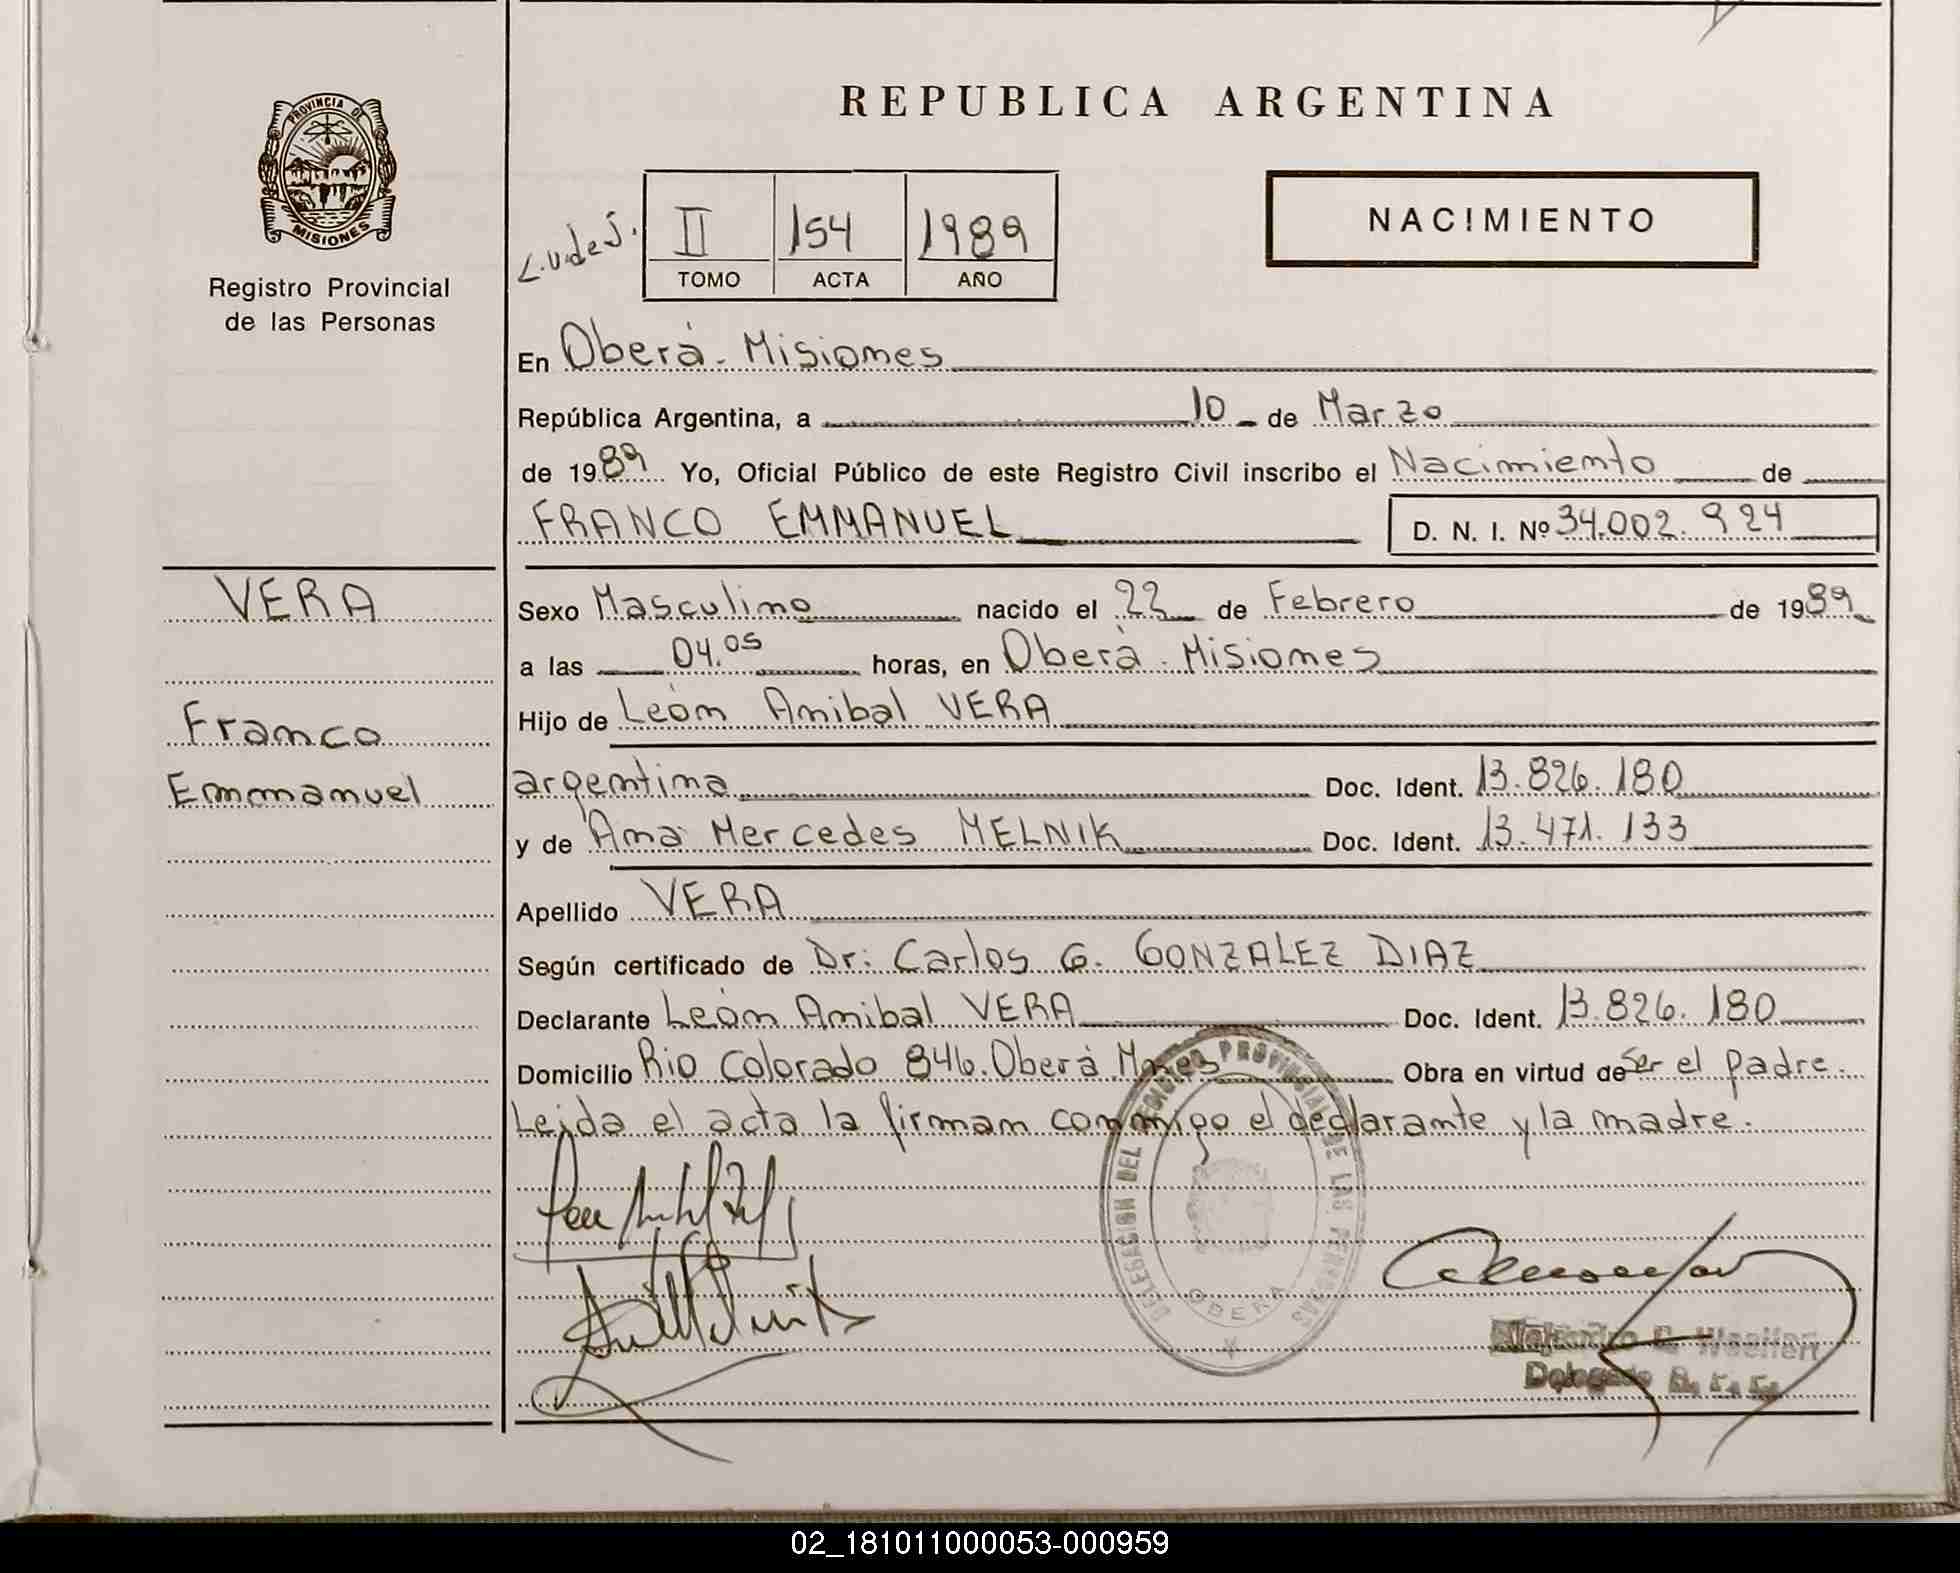 REPUBLICA ARGENTINA
PROVINCIA DE
MISIONES
Registro Provincial
de las Personas
L.V.de J.
II 154 1989
TOMO ACTA AÑO
NACIMIENTO
En Oberá - Misiones
República Argentina, a 10 de Marzo
de 1989 Yo, Oficial Público de este Registro Civil inscribo el Nacimiento de
FRANCO EMMANUEL D. N. I. Nº 34.002.924
VERA
Franco
Emmanuel
Sexo Masculino nacido el 22 de Febrero de 1989
a las 04.05 horas, en Oberá - Misiones
Hijo de León Anibal VERA
argentina Doc. Ident. 13.826.180
y de Ana Mercedes MELNIK Doc. Ident. 13.471.133
Apellido VERA
Según certificado de Dr: Carlos G. GONZALEZ DIAZ
Declarante León Anibal VERA Doc. Ident. 13.826.180
Domicilio Rio Colorado 846. Oberá Mnes Obra en virtud de ser el padre.
Leida el acta la firman conmigo el declarante y la madre.
DELEGACION DEL REGISTRO PROVINCIAL DE LAS PERSONAS
OBERA
Delegado
02_181011000053-000959